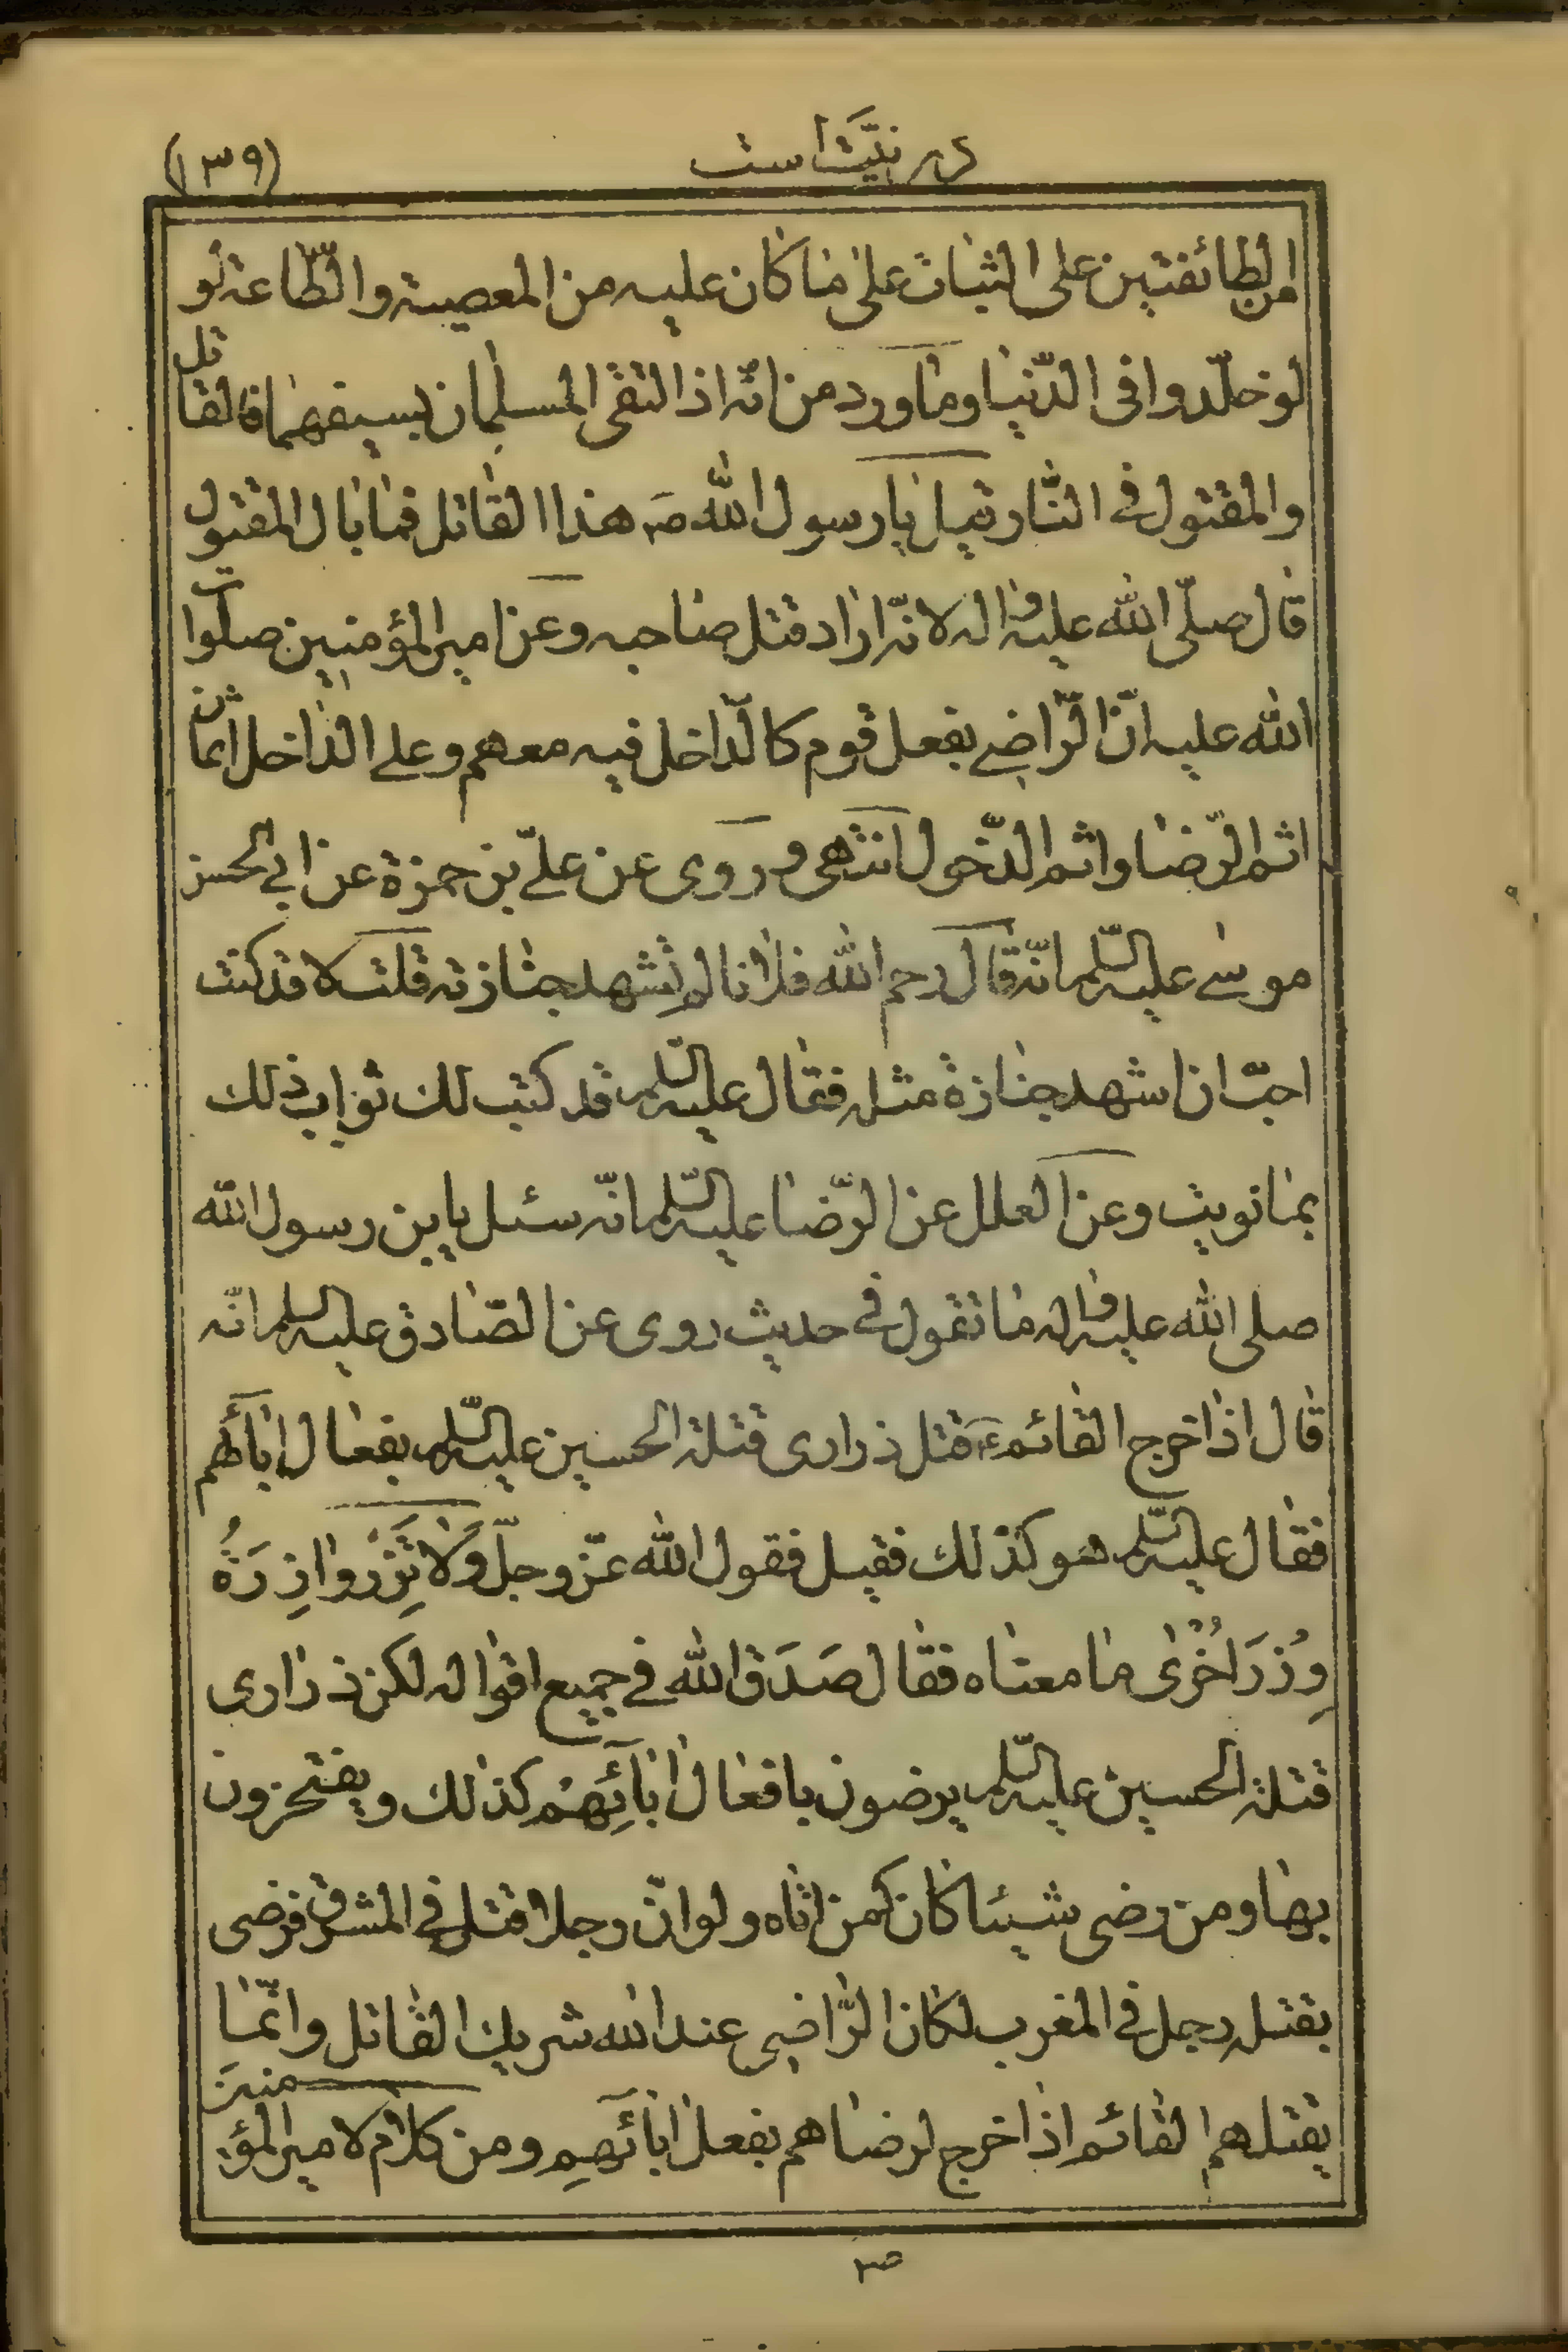 در نیّت است (١٣٩)
من الطائفتين على الثبات على ما كان عليه من المعصية والطّاعة لو
لو خلّدوا فى الدّنيا وما ورد من انّه اذا التقى المسلمان بسيفهما فالقاتل
والمقتول فى النّار قيل يا رسول الله صَ هذا القاتل فما بال المقتول
قال صلّى الله عليه واله لانّه اراد قتل صاحبه وعن امير المؤمنين صلوات
الله عليه انّ الرّاضے بفعل قوم كالدّاخل فيه معهم وعلے الداخل اثمان
اثم الرّضا واثم الدّخول انتهى وروى عن علىّ بن حمزة عن ابى الحسن
موسٰے عليه السّلم انّه قال رحم الله فلانا لم تشهد جنازته قلت لا قد كنت
احبّ ان اشهد جنازة مثله فقال عليه السّلم قد كتب لك ثواب ذلك
بما نويت وعن العلل عن الرّضا عليه السّلم انّه سئل يابن رسول الله
صلى الله عليه واله ما تقول فى حديث روى عن الصّادق عليه السلم انّه
قال اذا خرج القائم عَ قتل ذرارى قتلة الحسين عليه السّلم بفعال ابآئهم
فقال عليه السّلم هو كذلك فقيل فقول الله عزّ وجلّ وَلا تَزِرُ وازِرَةٌ
وِزْرَ اُخْرٰى ما معناه فقال صَدَقَ الله فے جميع اقواله لكن ذرارى
قتلة الحسين عليه السّلم يرضون بافعال ابآئِهِمْ كذلك ويفتخرون
بها ومن رضى شيئا كان كمن اتاه ولو انّ رجلا قتل فى المشرق فرضى
بقتله رجل فى المغرب لكان الرّاضى عند الله شريك القاتل وانّما
يقتلهم القائم اذا خرج لرضاهم بفعل ابآئهِم ومن كلام لامير المؤمنين